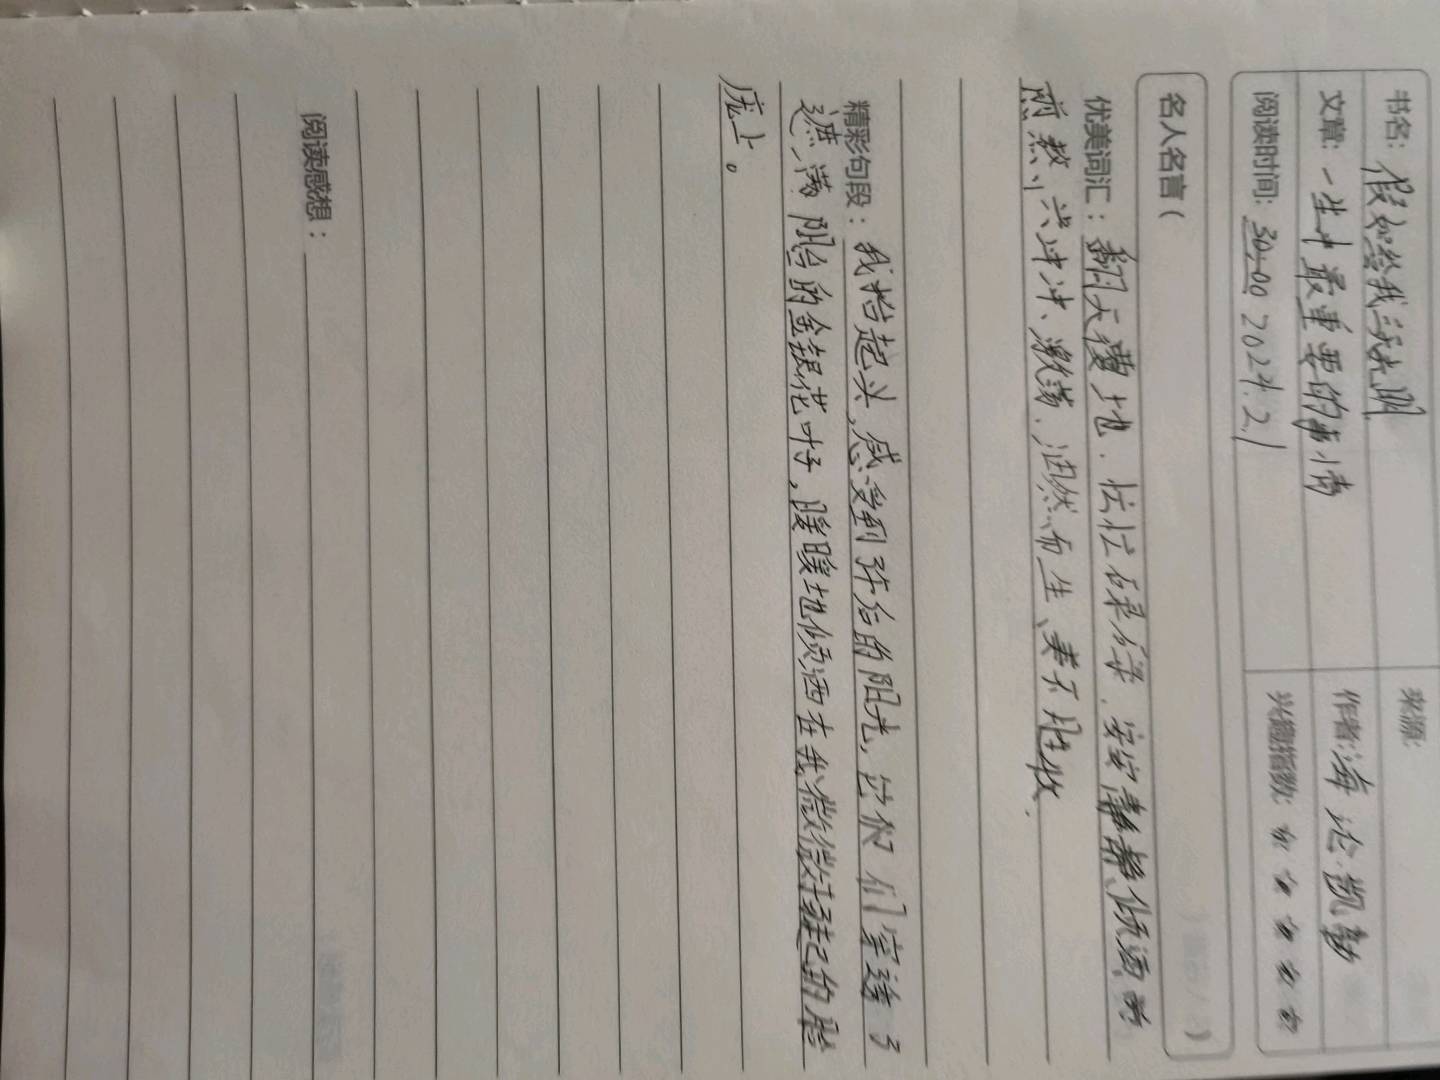 书名: 假如给我三天光明 来源:
文章: 一生中最重要的事情 作者: 海伦·凯勒
阅读时间: 30:00 2024.2.1 兴趣指数:
名人名言( )
优美词汇: 翻天覆地、忙忙碌碌、安安静静、倾洒、
兴冲冲、激荡、油然而生、美不胜收.
精彩句段: 我抬起头,感受到午后的阳光,它们穿透了
遮满阳台的金银花叶子,暖暖地倾洒在我微微扬起的脸
庞上。
阅读感想: